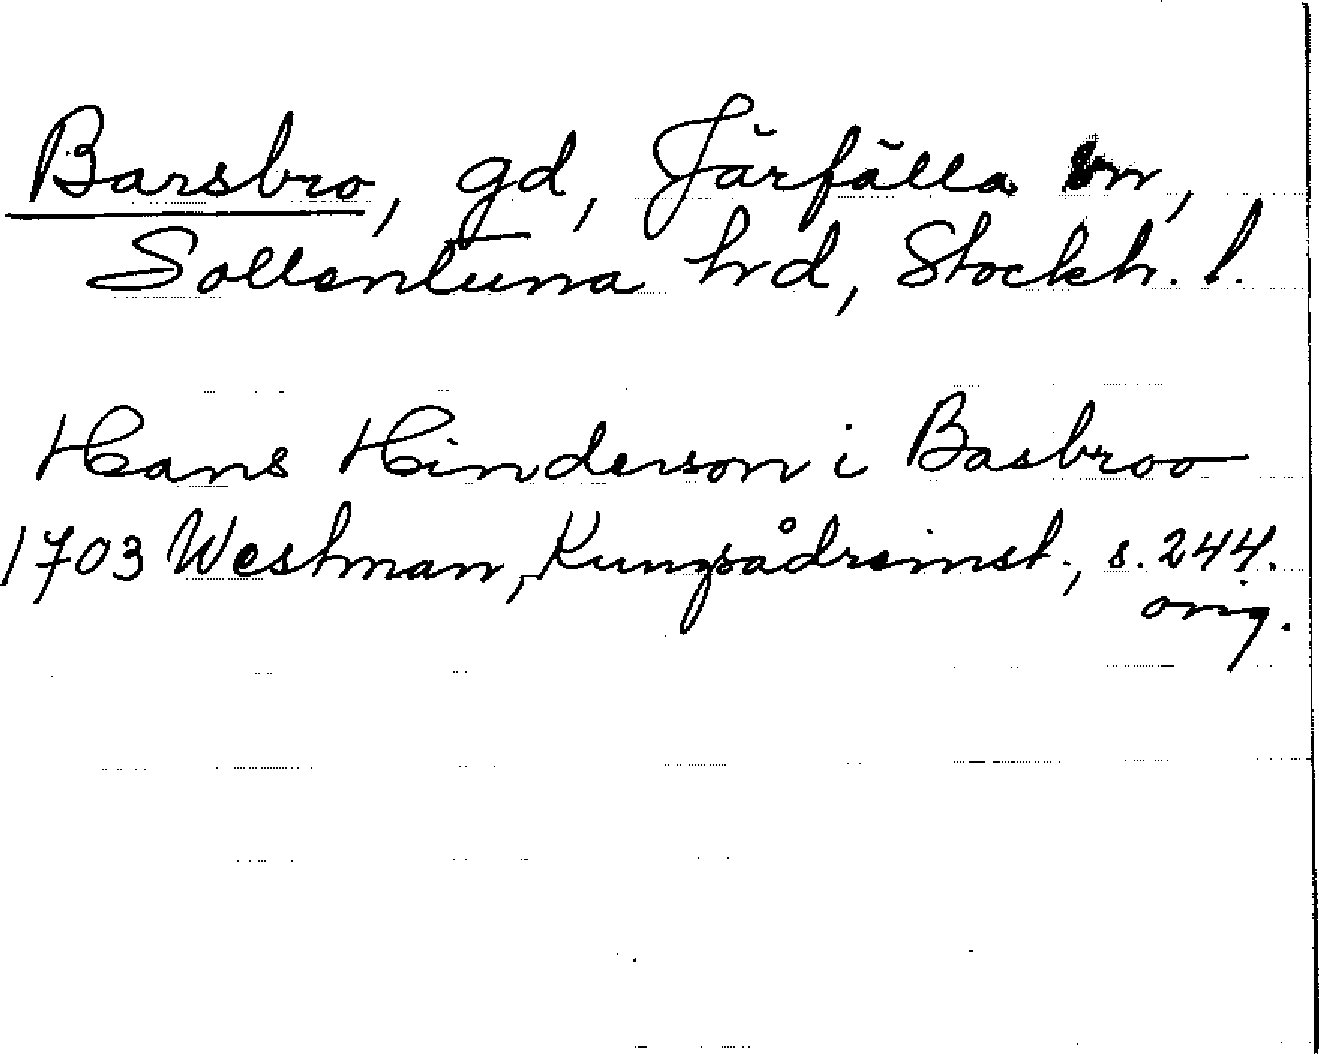 Barsbro, gd, Järfälla sn,
Sollentuna hd, Stockh. l.
Hans Hinderson i Basbroo
1703 Westman, Kungsådreinst., s. 244.
orig.